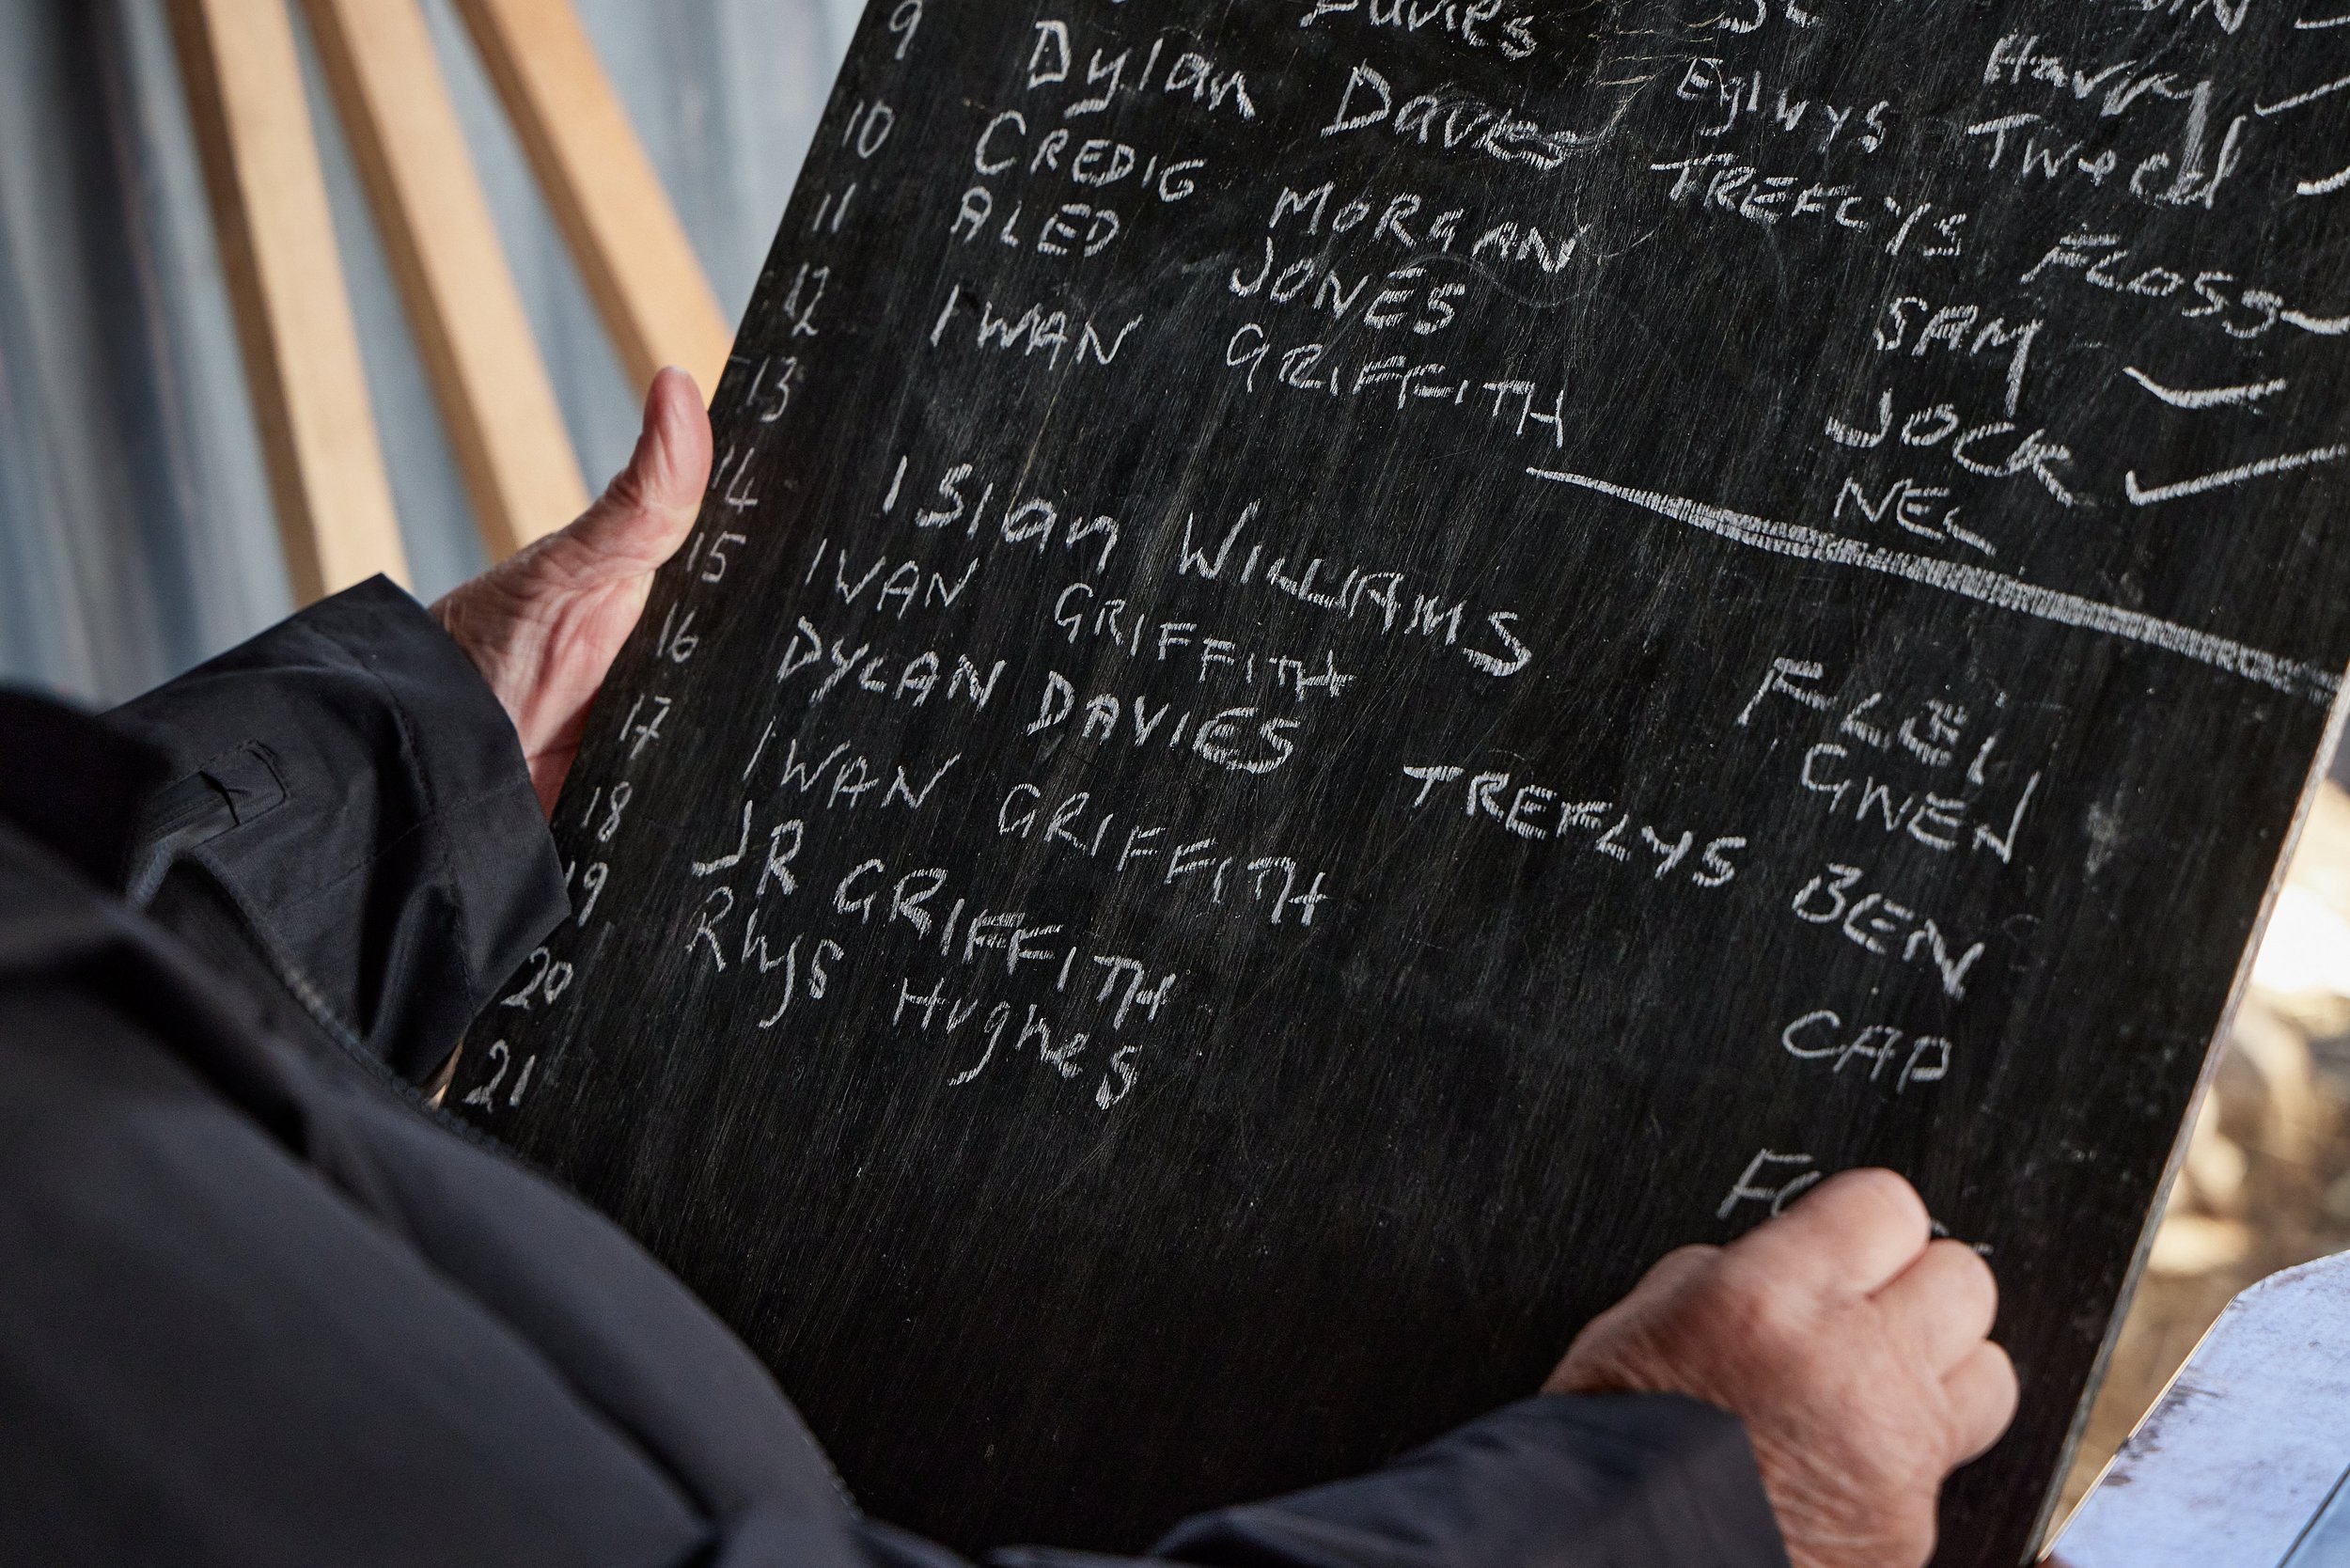 Davies Eglwys Tweed
Harry
9 Dylan Davies TREFLYS FLOSS
10 CREDIG MORGAN SAM
11 ALED JONES JOCK
12 IWAN GRIFFITH NEL
13
14 ISlan WILLIAMS
15 IWAN GRIFFITH GWEN
16 DYLAN DAVIES TREFLYS BEN
17 IWAN GRIFFITH CAP
18 JR GRIFFITH
19 Rhys Hughes
20
21